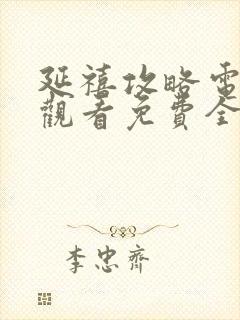 延禧攻略電
觀看免費全
李忠齊